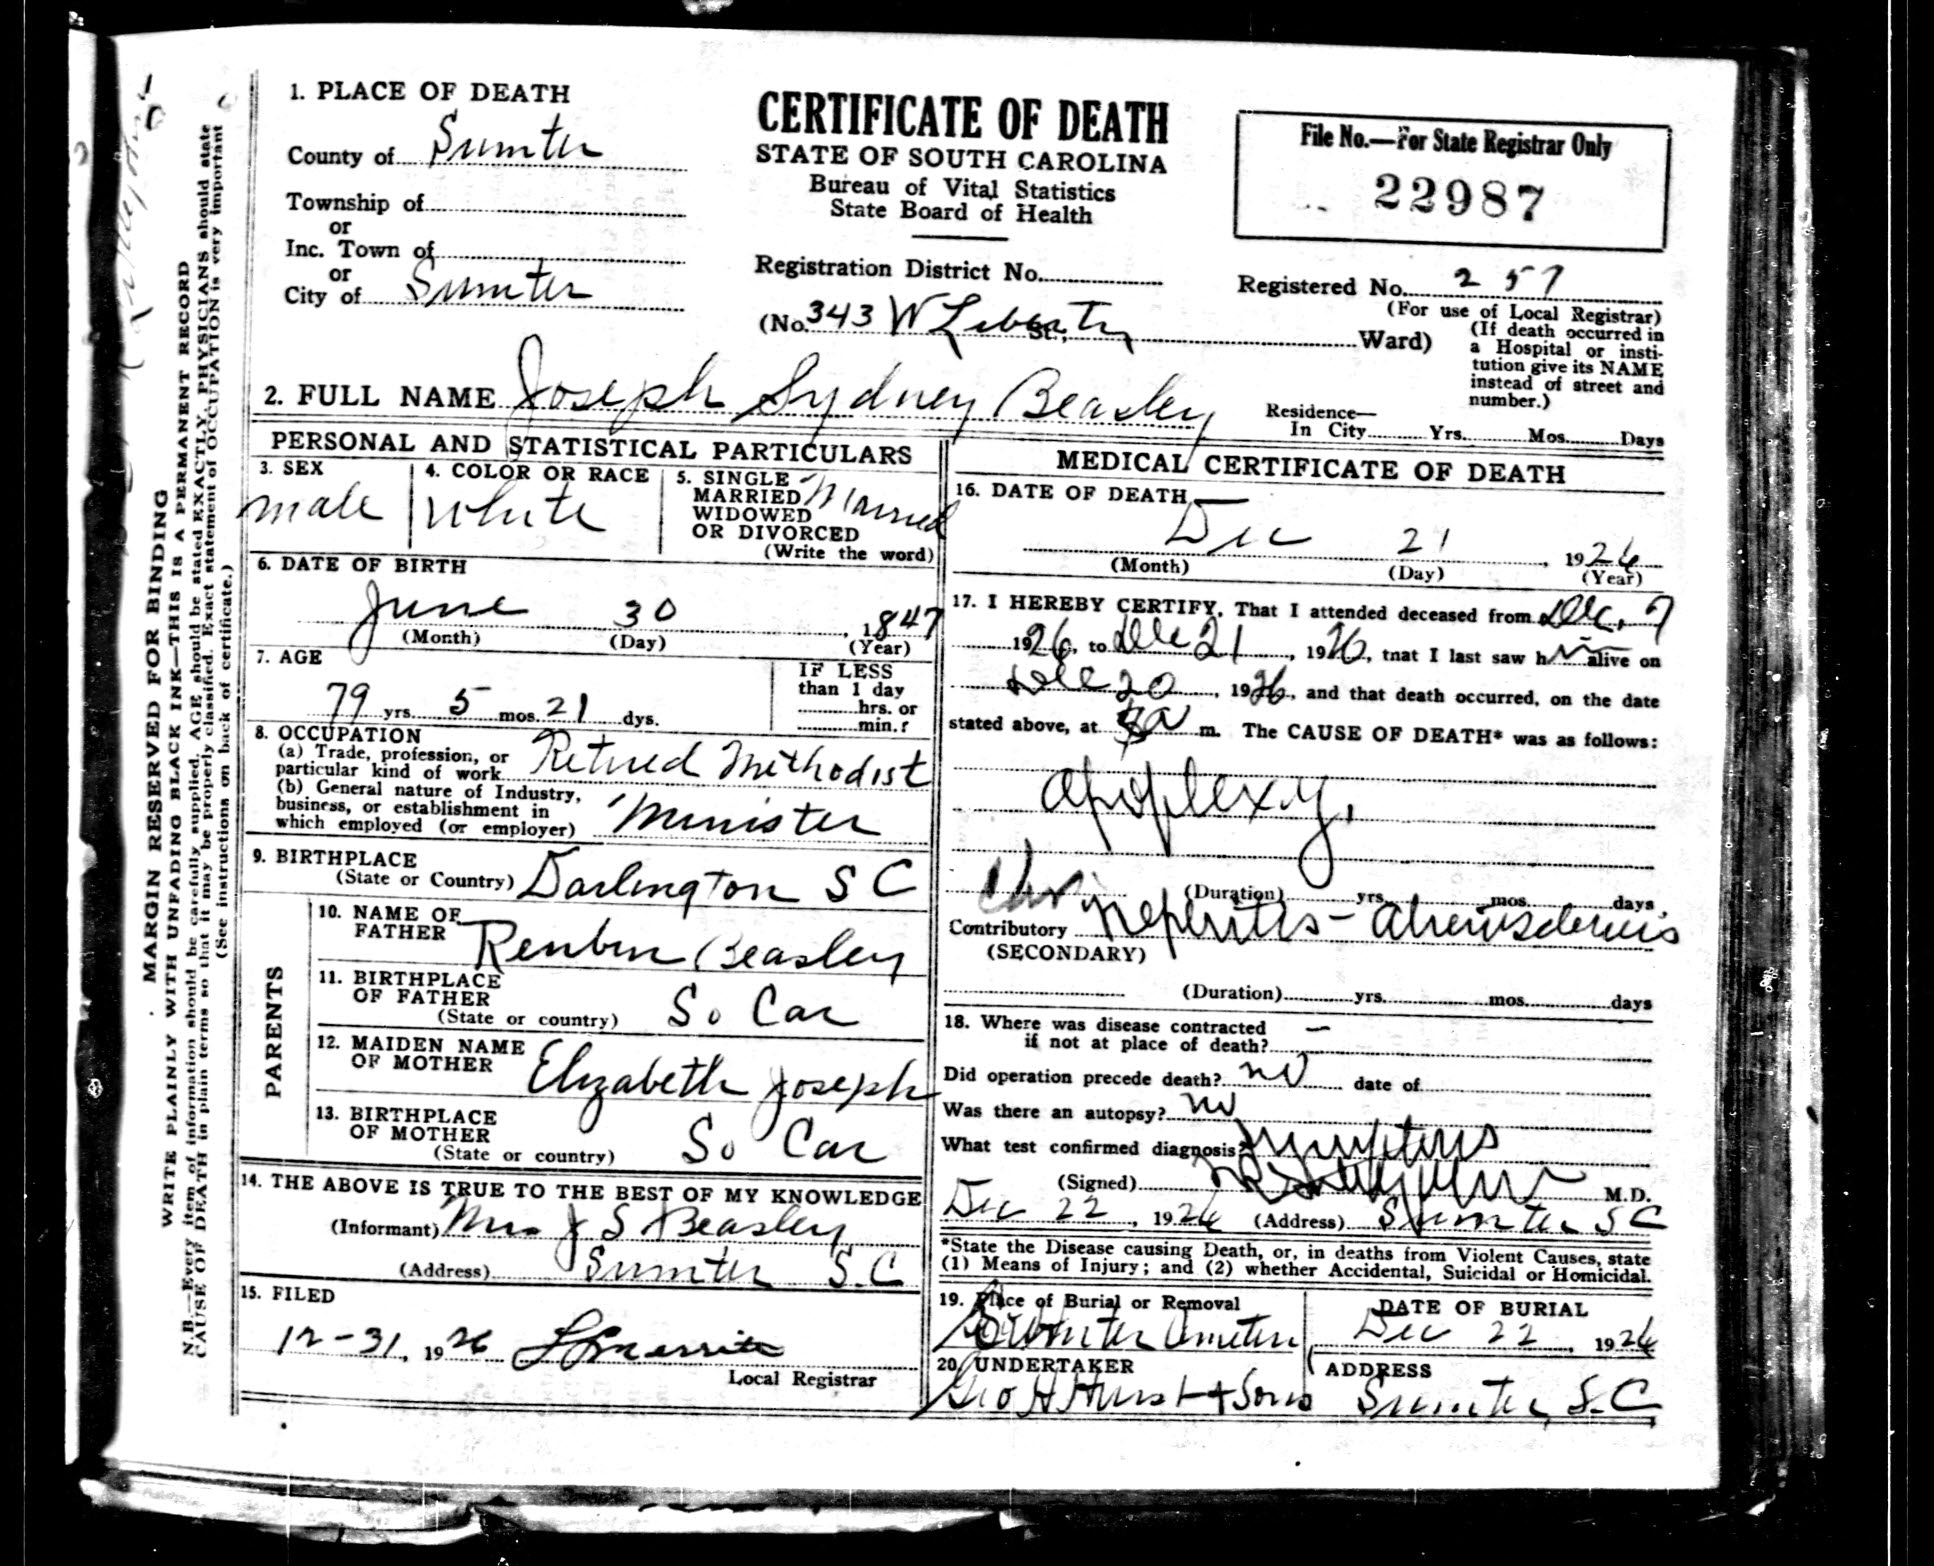 1. PLACE OF DEATH
County of Sumter
Township of
or
Inc. Town of
or
City of Sumter
CERTIFICATE OF DEATH
STATE OF SOUTH CAROLINA
Bureau of Vital Statistics
State Board of Health
Registration District No.
(No. 343 W Liberty St.; Ward)
File No.—For State Registrar Only
22987
Registered No. 257
(For use of Local Registrar)
(If death occurred in
a Hospital or insti-
tution give its NAME
instead of street and
number.)
2. FULL NAME Joseph Sydney Beasley
Residence—
In City Yrs. Mos. Days
PERSONAL AND STATISTICAL PARTICULARS
3. SEX
male
4. COLOR OR RACE
White
5. SINGLE
MARRIED
WIDOWED
OR DIVORCED
(Write the word)
Married
6. DATE OF BIRTH
June 30, 1847
(Month) (Day) (Year)
7. AGE
79 yrs. 5 mos. 21 dys.
IF LESS
than 1 day
hrs. or
min.?
8. OCCUPATION
(a) Trade, profession, or
particular kind of work Retired Methodist
(b) General nature of Industry,
business, or establishment in
which employed (or employer) Minister
9. BIRTHPLACE
(State or Country) Darlington S C
PARENTS
10. NAME OF
FATHER Reuben Beasley
11. BIRTHPLACE
OF FATHER
(State or country) So Car
12. MAIDEN NAME
OF MOTHER Elizabeth Joseph
13. BIRTHPLACE
OF MOTHER
(State or country) So Car
14. THE ABOVE IS TRUE TO THE BEST OF MY KNOWLEDGE
(Informant) Mrs J S Beasley
(Address) Sumter S.C
15. FILED
12-31, 1926
Local Registrar
MEDICAL CERTIFICATE OF DEATH
16. DATE OF DEATH
Dec 21, 1926
(Month) (Day) (Year)
17. I HEREBY CERTIFY, That I attended deceased from Dec. 7
1926, to Dec 21, 1926, that I last saw him alive on
Dec 20, 1926, and that death occurred, on the date
stated above, at a m. The CAUSE OF DEATH* was as follows:
apoplexy.
(Duration) yrs. mos. days.
Contributory nephritis - arteriosclerosis
(SECONDARY)
(Duration) yrs. mos. days
18. Where was disease contracted
if not at place of death? —
Did operation precede death? no date of
Was there an autopsy? no
What test confirmed diagnosis? symptoms
(Signed) M.D.
Dec 22, 1926 (Address) Sumter S C
*State the Disease causing Death, or, in deaths from Violent Causes, state
(1) Means of Injury; and (2) whether Accidental, Suicidal or Homicidal.
19. Place of Burial or Removal
Sumter Cemetery
DATE OF BURIAL
Dec 22, 1926
20. UNDERTAKER
Geo H Hurst + Sons
ADDRESS
Sumter, S.C
MARGIN RESERVED FOR BINDING
WRITE PLAINLY WITH UNFADING BLACK INK—THIS IS A PERMANENT RECORD
N.B.—Every item of information should be carefully supplied. AGE should be stated EXACTLY. PHYSICIANS should state
CAUSE OF DEATH in plain terms so that it may be properly classified. Exact statement of OCCUPATION is very important
(See instructions on back of certificate.)